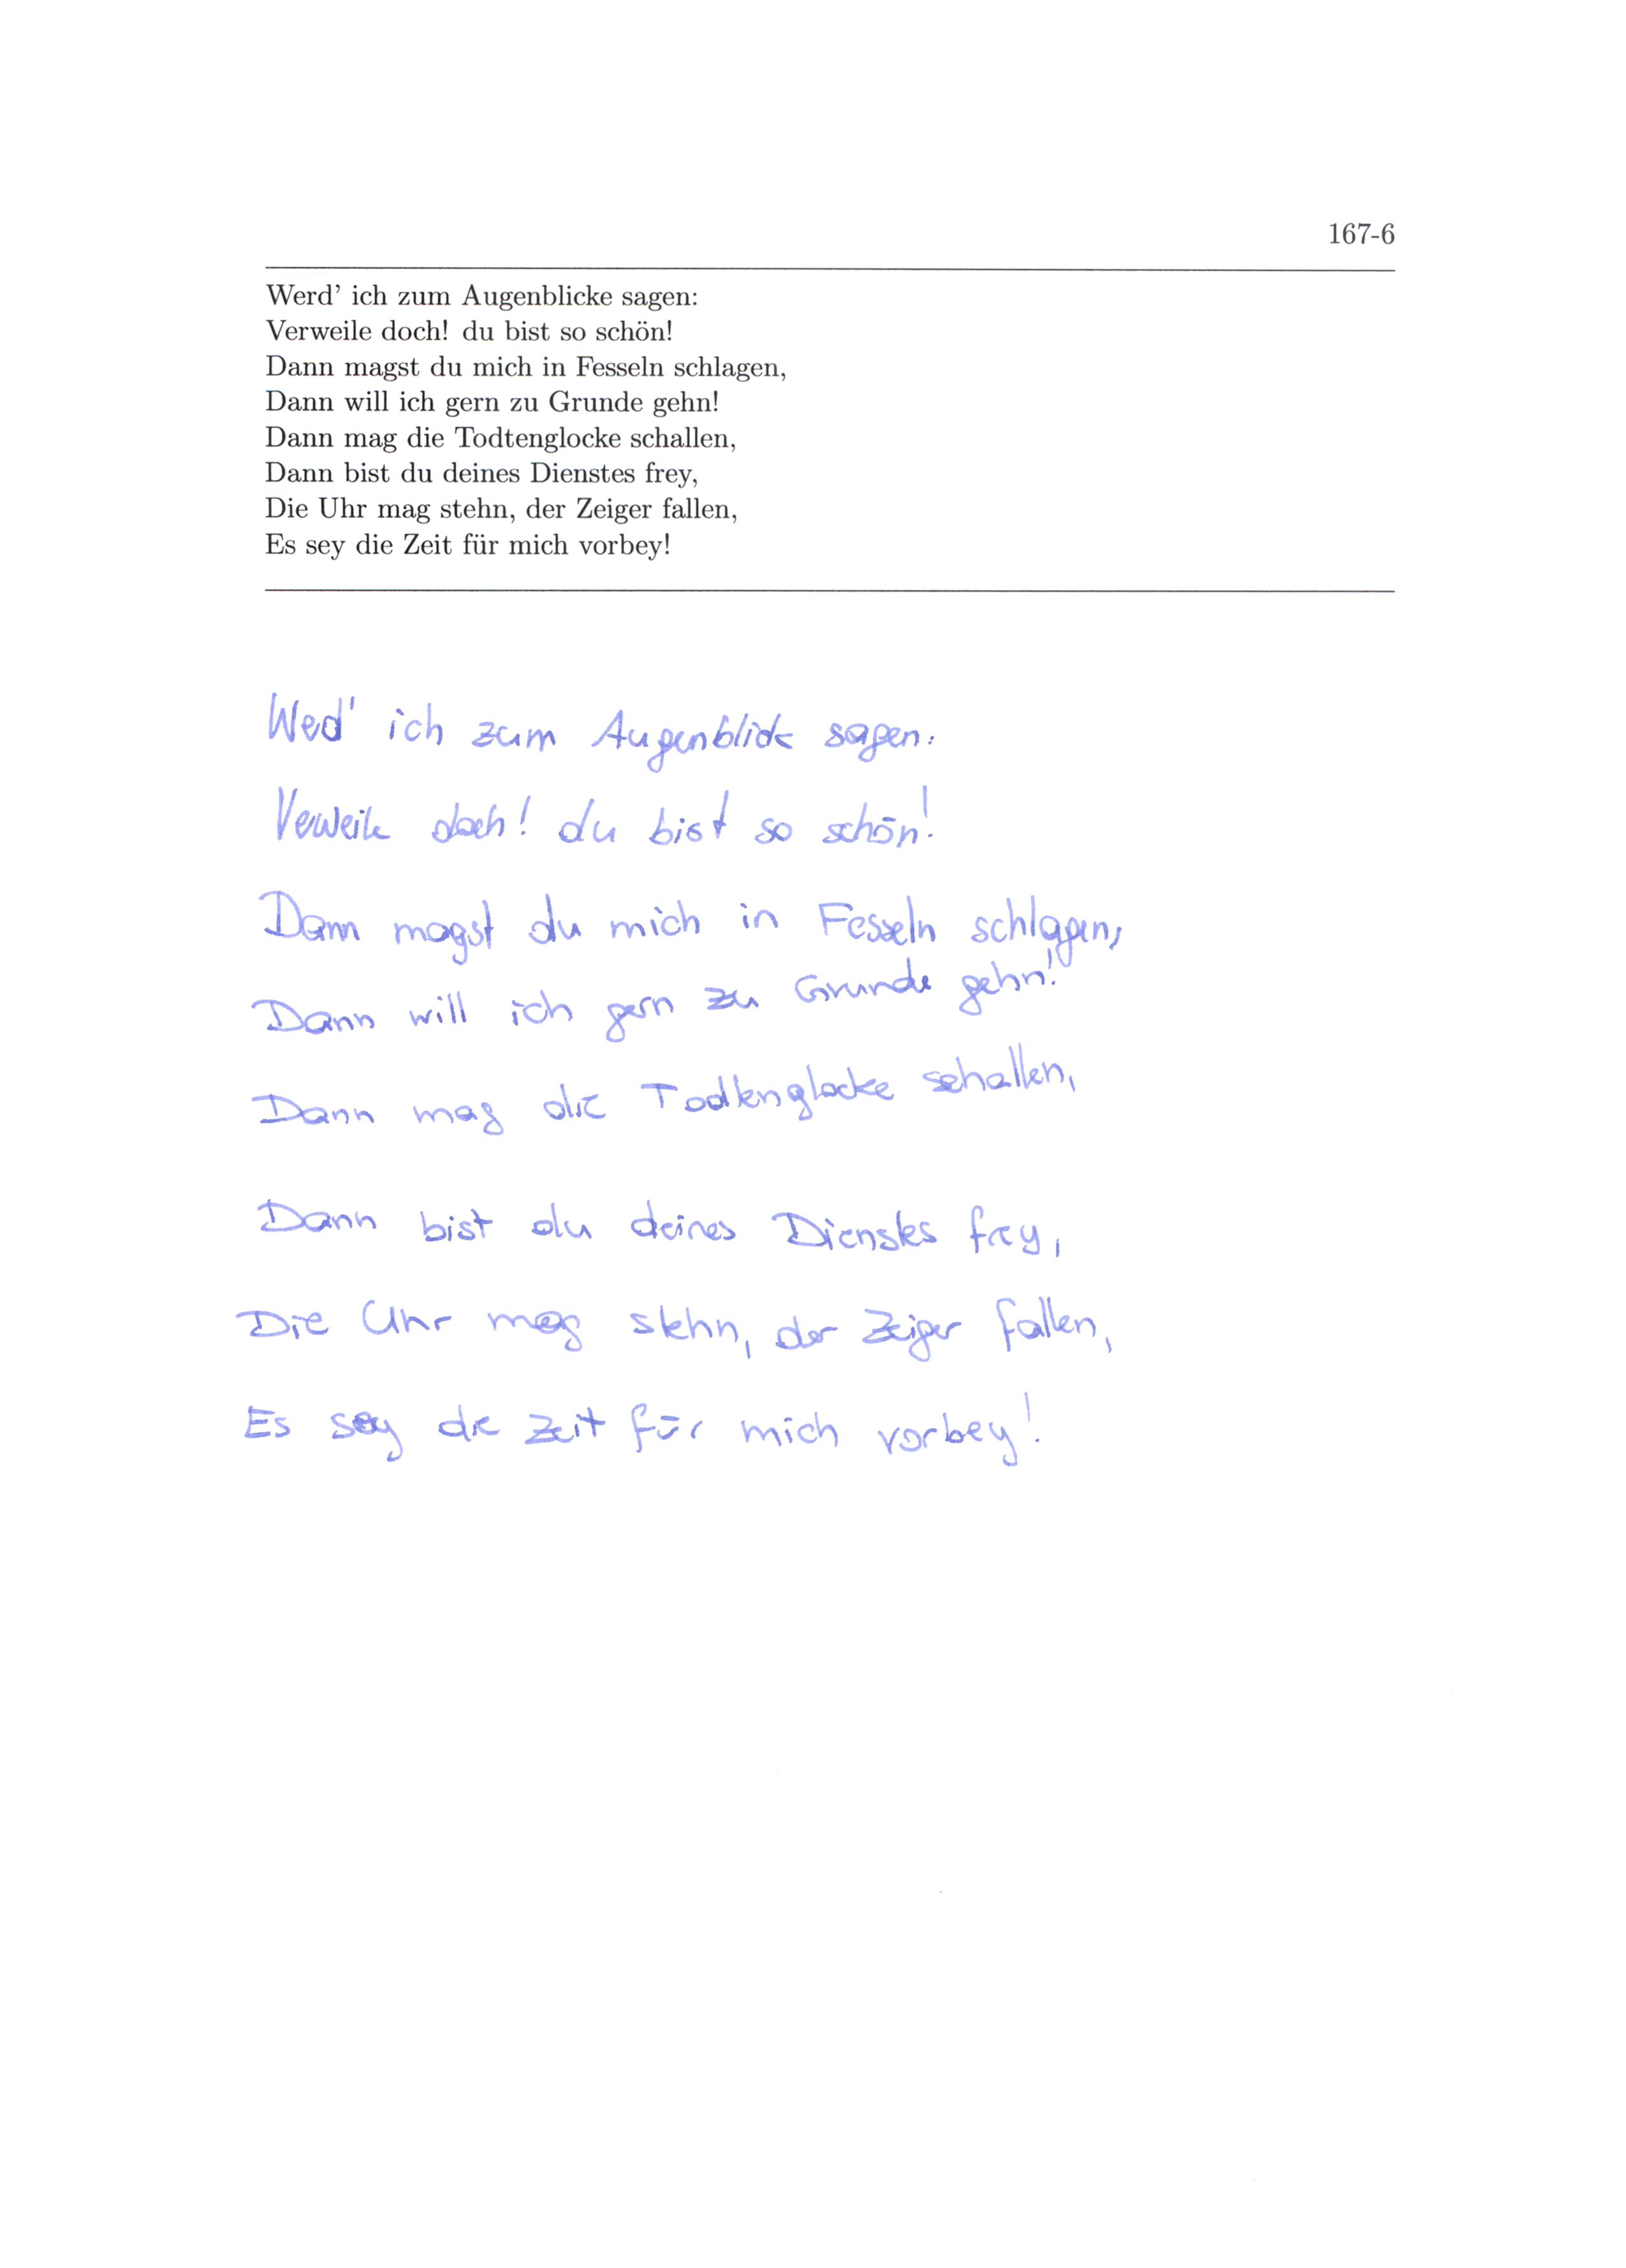 167-6
Werd' ich zum Augenblicke sagen:
Verweile doch! du bist so schön!
Dann magst du mich in Fesseln schlagen,
Dann will ich gern zu Grunde gehn!
Dann mag die Todtenglocke schallen,
Dann bist du deines Dienstes frey,
Die Uhr mag stehn, der Zeiger fallen,
Es sey die Zeit für mich vorbey!
Werd' ich zum Augenblicke sagen:
Verweile doch! du bist so schön!
Dann magst du mich in Fesseln schlagen,
Dann will ich gern zu Grunde gehn!
Dann mag die Todtenglocke schallen,
Dann bist du deines Dienstes frey,
Die Uhr mag stehn, der Zeiger fallen,
Es sey die Zeit für mich vorbey!